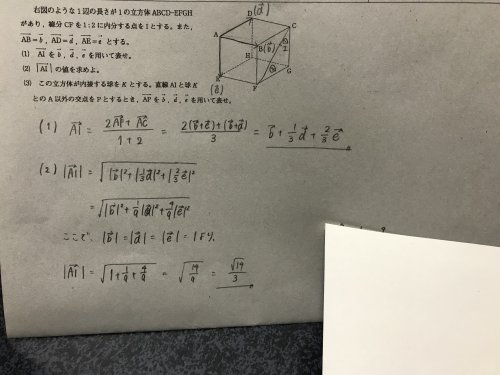 右図のような1辺の長さが1の立方体ABCD-EFGH
があり、線分CFを1:2に内分する点をIとする。また、
AB=b, AD=d, AE=e とする。
(1) AIをb, d, eを用いて表せ。
(2) |AI|の値を求めよ。
(3) この立方体が内接する球をKとする。直線AIと球K
とのA以外の交点をPとするとき、APをb, d, eを用いて表せ。
D (d)
C
A
B(b)
① I
H
②
G
E
(e)
F
(1) AI = 2AF + AC / 1+2 = 2(b+e)+(b+d) / 3 = b + 1/3 d + 2/3 e
(2) |AI| = √|b|²+|1/3 d|²+|2/3 e|²
= √|b|²+1/9|d|²+4/9|e|²
ここで、|b|=|d|=|e|=1より、
|AI| = √1+1/9+4/9 = √14/9 = √14/3